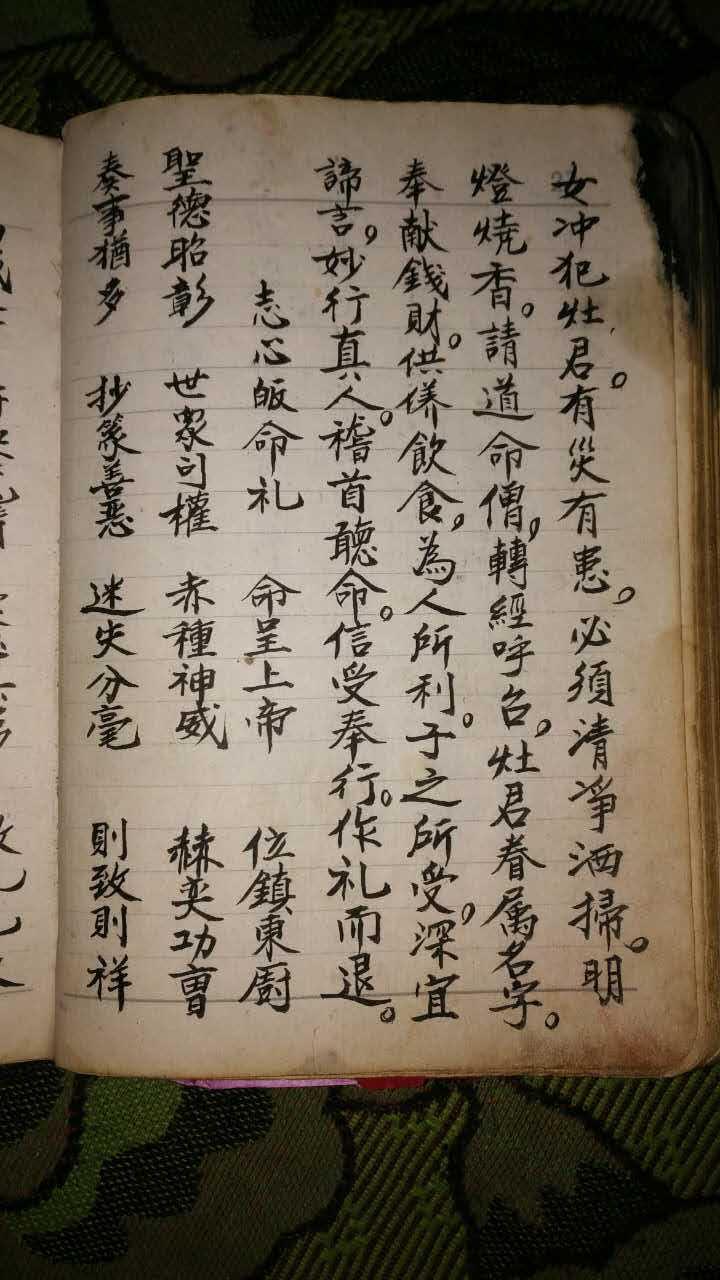 女冲犯灶君。有災有患。必須清爭洒掃。明
燈燒香。請道命僧，轉經呼召。灶君眷属名字。
奉献錢財。供俻飲食，為人所利。子之所受，深宜
諦言，妙行真人。稽首聽命。信受奉行。作礼而退。
志心皈命礼 命呈上帝 位鎮東厨
聖德昭彰 世家司權 赤種神威 赫奕功曹
奏事猶多 抄篆善恶 迷失分毫 則致則祥